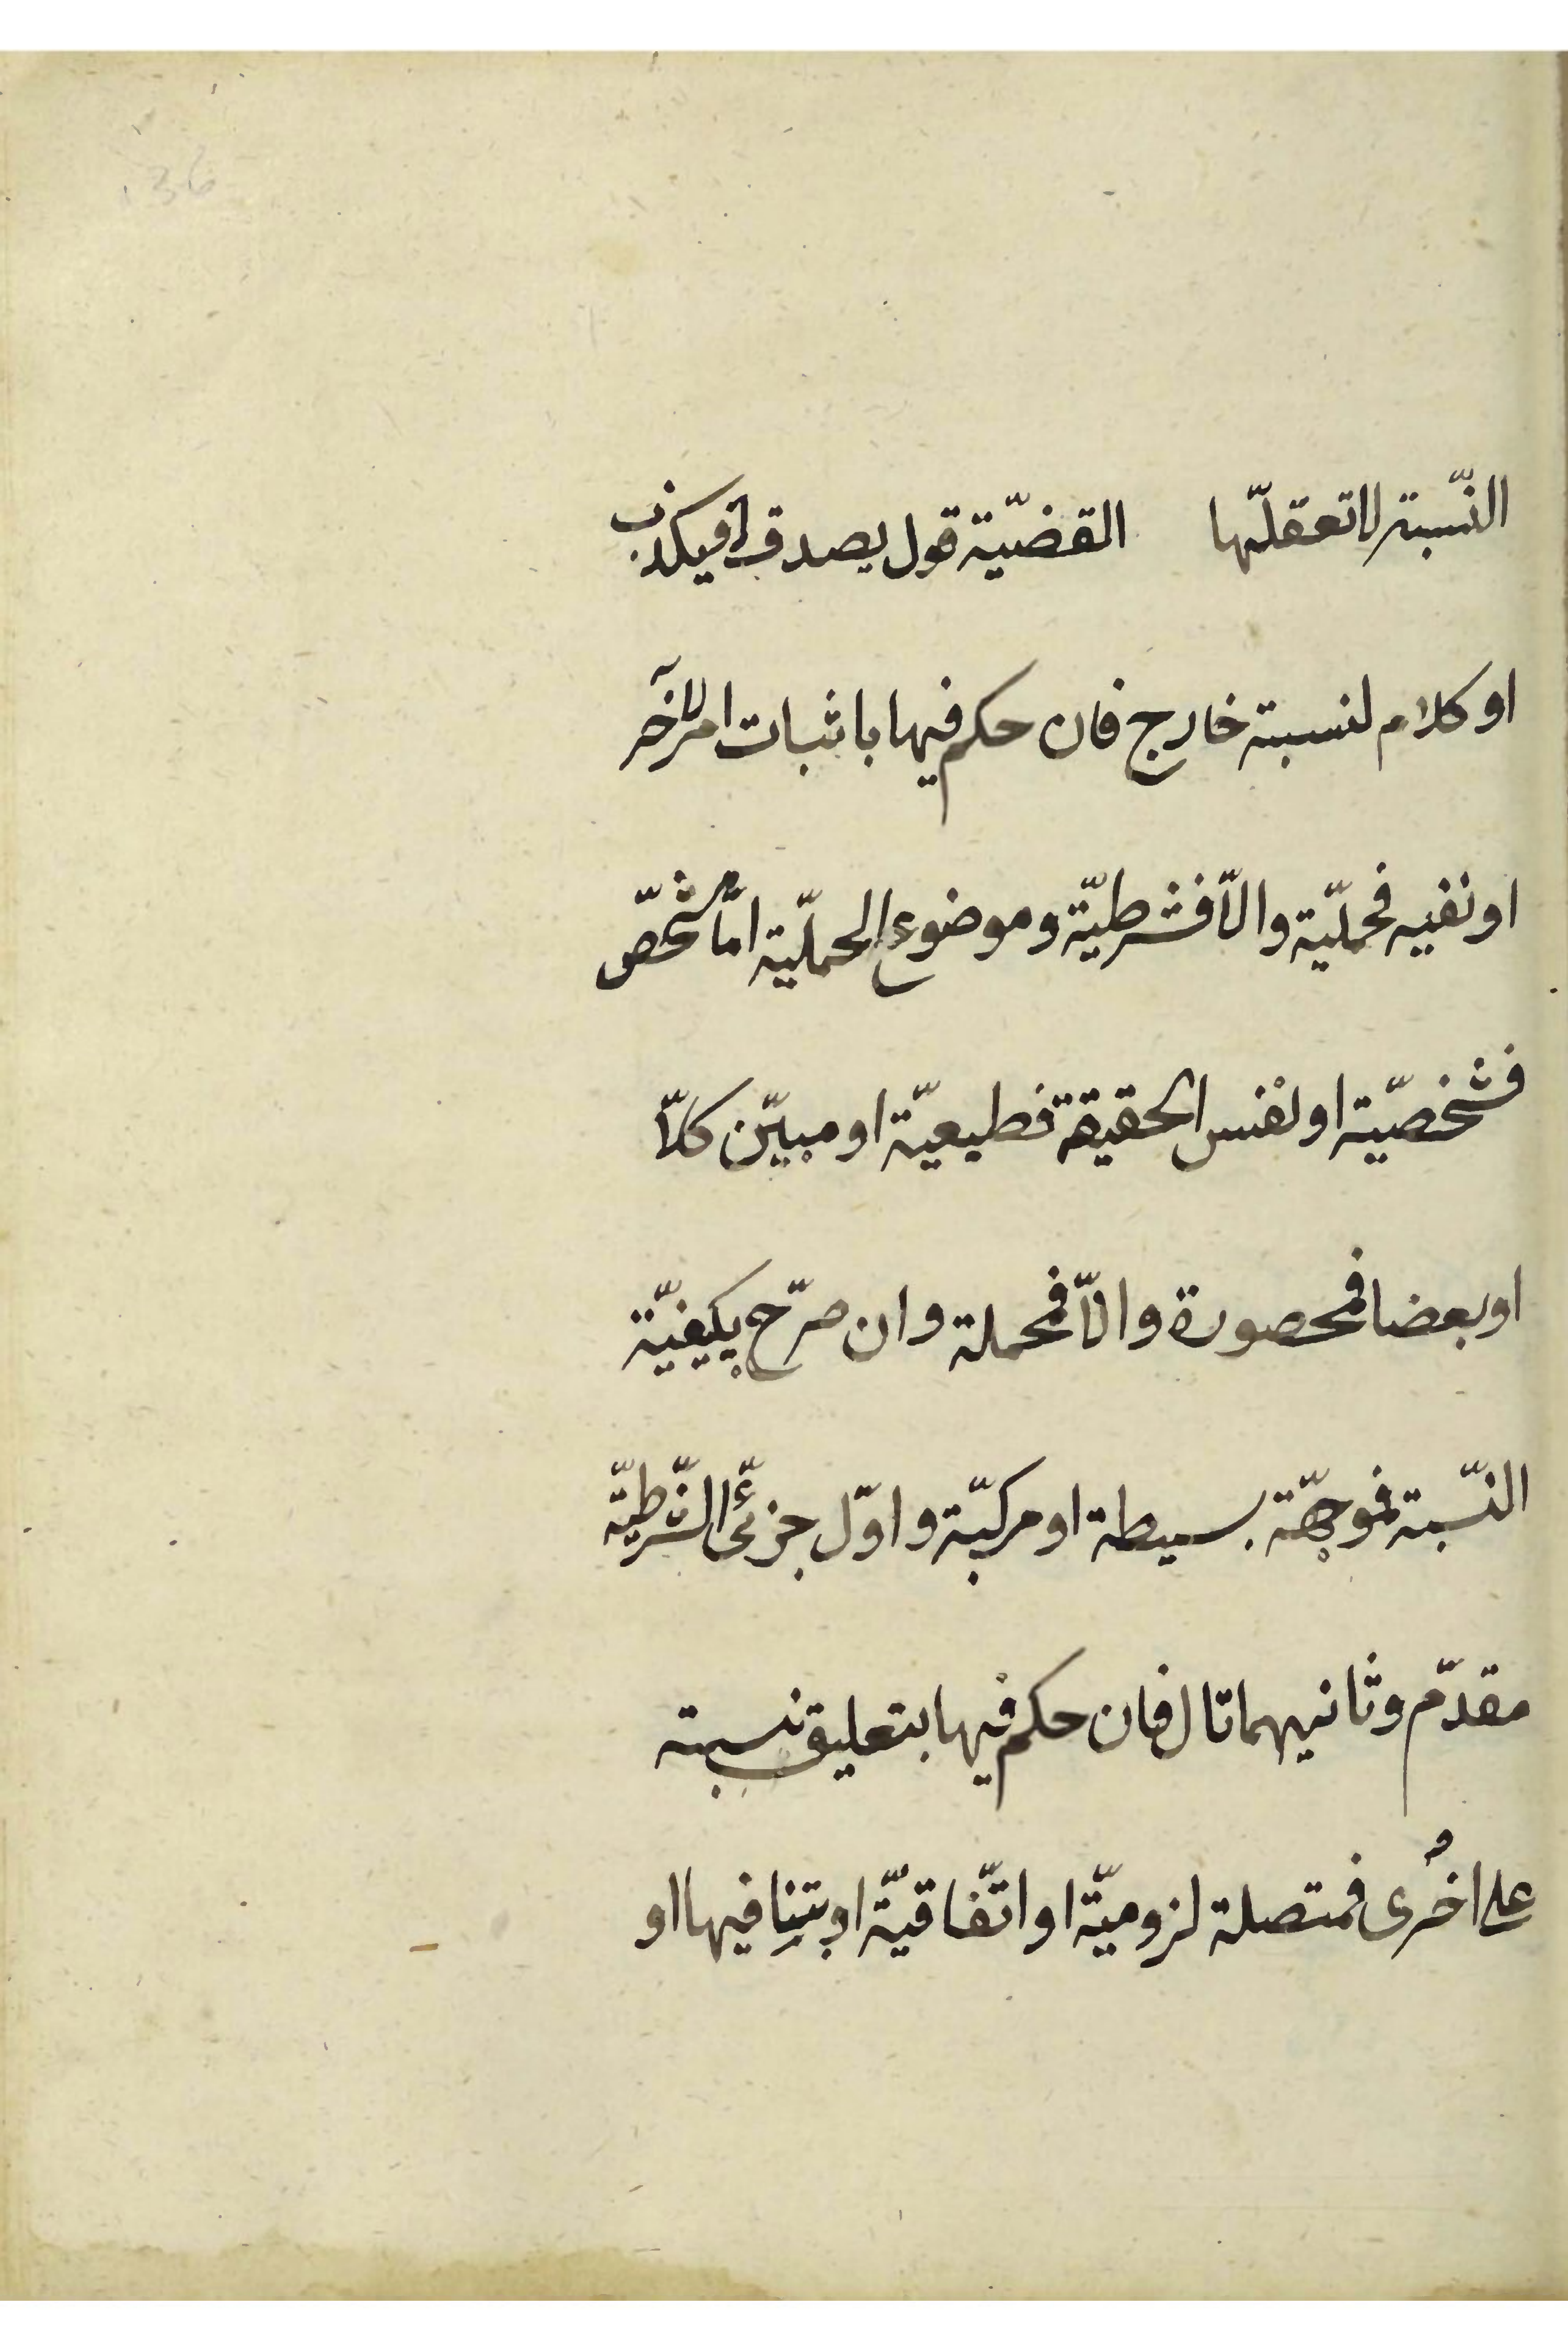 136
النّسبة لا تعقلّها القضيّة قول يصدق او يكذب
او كلام لنسبته خارج فان حكم فيها باثبات امر لآخر
او نفيه فحمليّة والّا فشرطيّة وموضوع الحمليّة امّا مشخّص
فشخصيّة او نفس الحقيقة فطبيعيّة او مبيّن كلّا
او بعضا فمحصورة والّا فمحملة وان صرّح بكيفيّة
النّسبة فموجّهة بسيطة او مركّبة واوّل جزئى الشّرطيّة
مقدّم وثانيهما تال فان حكم فيها بتعليق نسبته
على اخُرى فمتصلة لزوميّة او اتّفاقيّة او بتنافيها او